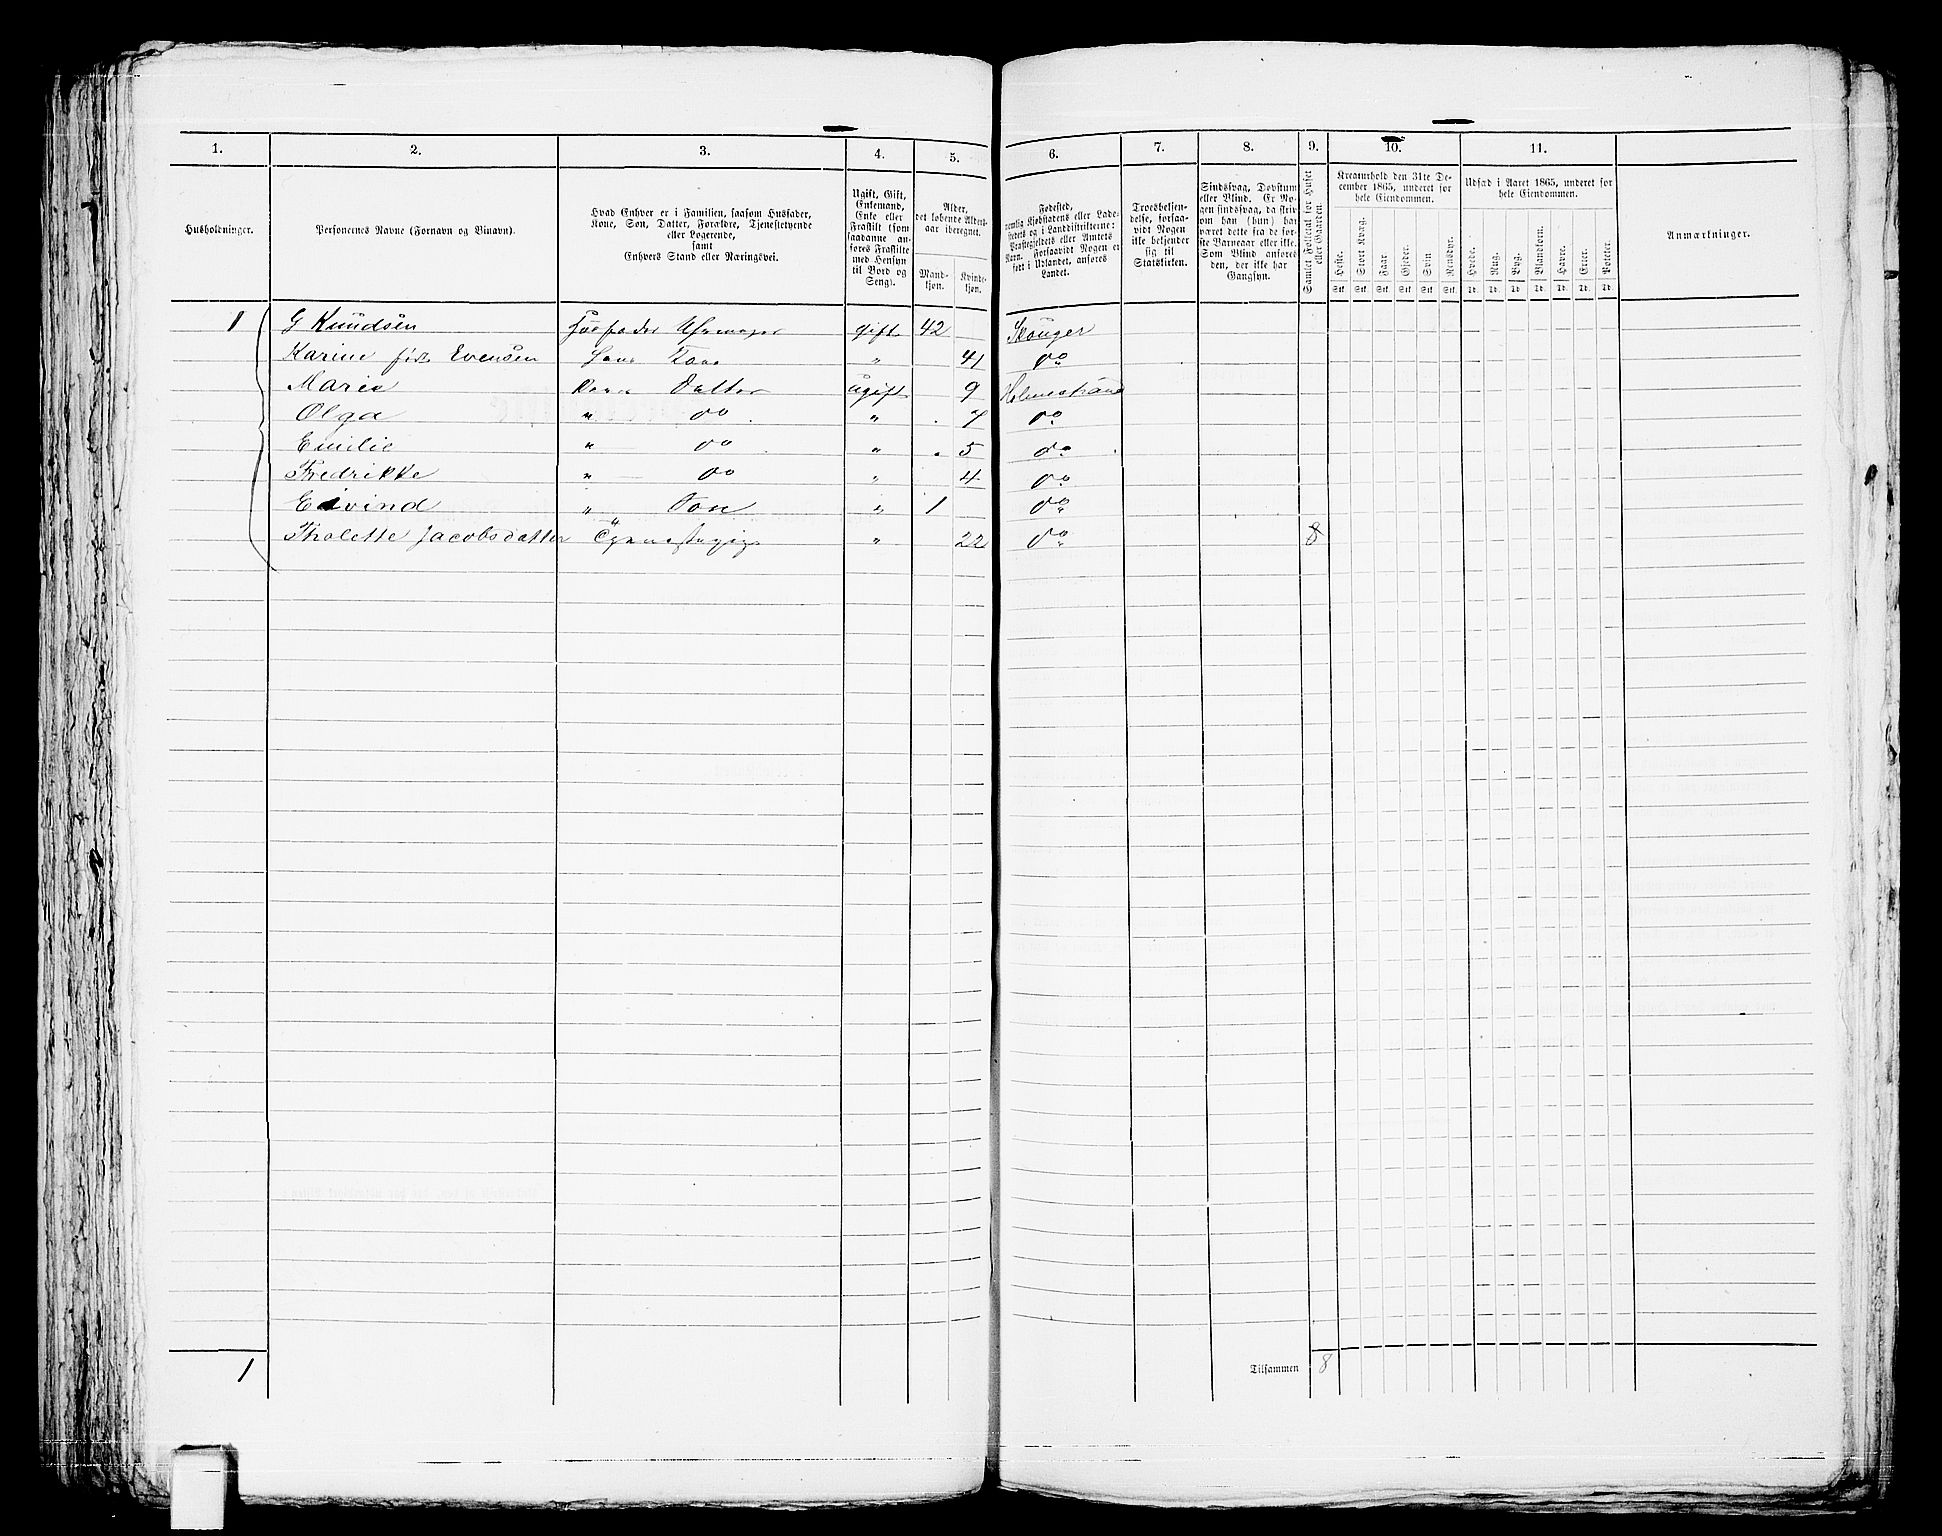 1. 2. 3. 4. 5. 6. 7. 8. 9. 10. 11.
Husholdninger.
Personernes Navne (Fornavn og Binavn).
Hvad Enhver er i Familien, saasom Husfader,
Kone, Søn, Datter, Forældre, Tjenestetyende
eller Logerende,
samt
Enhvers Stand eller Næringsvei.
Ugift, Gift,
Enkemand,
Enke eller
Fraskilt (som
saadanne an-
føres Fraskilte
med Hensyn
til Bord og
Seng).
Alder,
det løbende Alders-
aar iberegnet.
Mand-
kjøn.
Kvinde-
kjøn.
Fødested,
nemlig Kjøbstadens eller Lade-
stedets og i Landdistrikterne:
Præstegjeldets eller Amtets
Navn. Forsaavidt Nogen er
født i Udlandet, anføres
Landet.
Troesbekjen-
delse, forsaa-
vidt Nogen
ikke bekjender
sig til
Statskirken.
Sindssvag, Døvstum
eller Blind. Er No-
gen sindssvag, da skri-
ves om han (hun) har
været dette fra de før-
ste Barneaar eller ikke.
Som Blind anføres
den, der ikke har
Gangsyn.
Samlet Folketal for Huset
eller Gaarden.
Kreaturhold den 31te De-
cember 1865, underet for
hele Eiendommen.
Heste. Stort Kvæg. Faar Gjeder. Svin Rensdyr.
Stk. Stk. Stk. Stk. Stk. Stk.
Udsæd i Aaret 1865, underet for
hele Eiendommen.
Hvede. Rug. Byg. Blandkorn. Havre. Erter. Poteter.
Td. Td. Td Td. Td. Td. Td.
Anmærkninger.
1 G Knudsen Huusfader Uhrmager gift 42 Skouger
Karine født Evensen hans Kone " 41 do
Marie deres Datter ugift 9 Holmestrand
Olga " do " 7 do
Emilie " do " 5 do
Fredrikke " do " 4 do
Eivind " Søn " 1 do
Thalette Jacobsdatter Tjenestepige " 22 do 8
1 Tilsammen 8